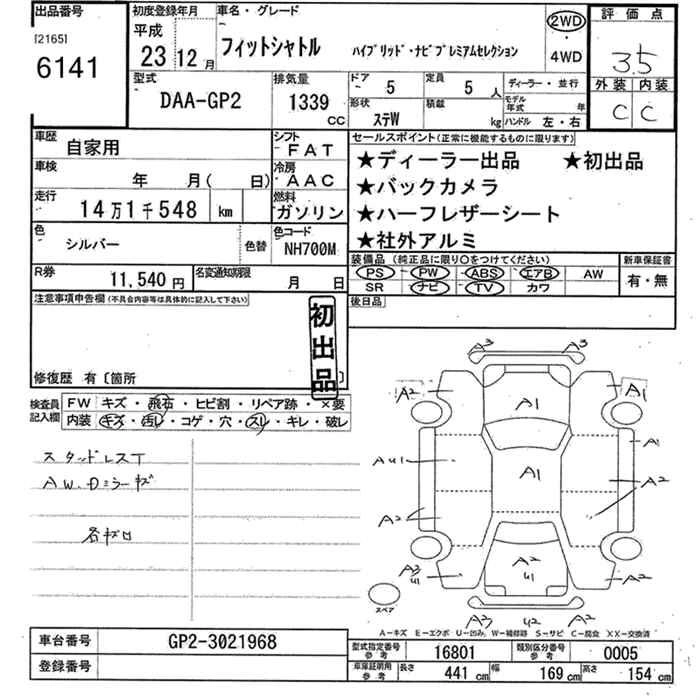 出品番号
[2165]
6141
初度登録年月
平成
23 12月
車名・グレード
フィットシャトル ハイブリッド・ナビプレミアムセレクション
2WD
・
4WD
評価点
3.5
外装 内装
C C
型式
DAA-GP2
排気量
1339
CC
ドア
5
定員
5 人
形状
ステW
積載
kg
ディーラー・並行
モデル年式 年
ハンドル 左・右
車歴
自家用
シフト
FAT
車検
年 月( 日)
冷房
AAC
走行
14万1千548 km
燃料
ガソリン
色
シルバー
色替
色コード
NH700M
R券
11,540 円
名変通知期限
月 日
セールスポイント(正常に機能するものに限ります)
★ディーラー出品 ★初出品
★バックカメラ
★ハーフレザーシート
★社外アルミ
装備品 (純正品に限り○をつけてください)
PS PW ABS エアB AW
SR ナビ TV カワ
新車保証書
有・無
後日品
注意事項申告欄(不具合内容等は具体的に記入して下さい)
初出品
修復歴 有〔箇所 〕
検査員記入欄
FW キズ・飛石・ヒビ割・リペア跡・×要
内装 キズ・汚レ・コゲ・穴・スレ・キレ・破レ
スタッドレスT
AW.Dミラーキズ
各キズロ
A3 A3
A2 A1 A1
A1
AU1 A1 A2
A2
A3 U1 A2 U1 A2
A3 U2 A2
スペア
A-キズ E-エクボ U-凹み W-補修跡 S-サビ C-腐食 XX-交換済
車台番号
GP2-3021968
登録番号
型式指定番号
参考
16801
類別区分番号
参考
0005
車庫証明用
参考
長さ 441 cm 幅 169 cm 高さ 154 cm